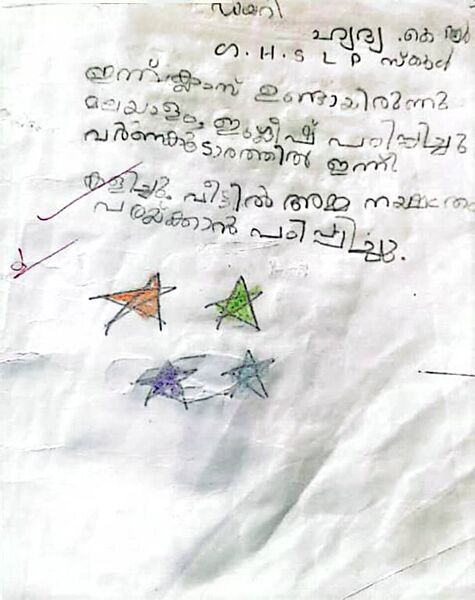 ഡയറി
ഹൃദ്യ .കെ ആർ
G.H.S L P സ്കൂൾ
ഇന്ന് ക്ലാസ് ഉണ്ടായിരുന്നു
മലയാളം, ഇംഗ്ലീഷ് പഠിപ്പിച്ചു
വർണ്ണകൂടാരത്തിൽ ഇന്ന്
കളിച്ചു. വീട്ടിൽ അമ്മ നക്ഷത്രം
വരയ്ക്കാൻ പഠിപ്പിച്ചു.